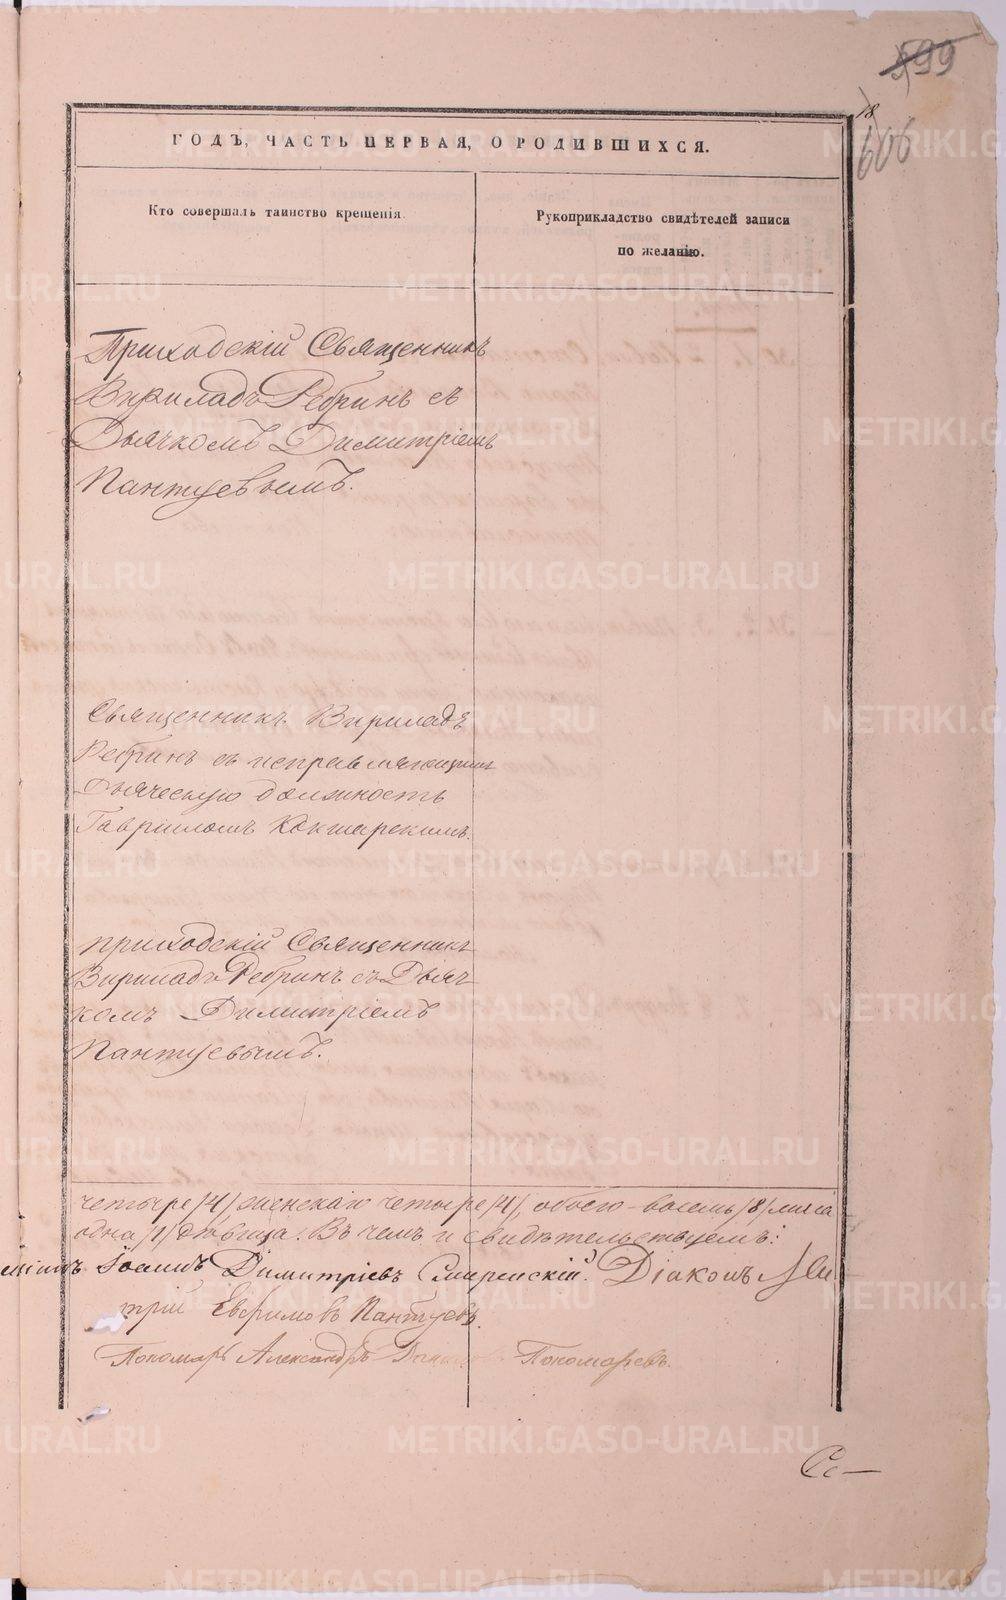 599
18
606
ГОДЪ, ЧАСТЬ ПЕРВАЯ, О РОДИВШИХСЯ.
Кто совершалъ таинство крещенія.
Рукоприкладство свидѣтелей записи
по желанію.
Приходскій Священникъ
Вириладъ Ребринъ съ
Дьячкомъ Димитріемъ
Пантуевымъ.
Священникъ Вириладъ
Ребринъ съ исправляющимъ
дьяческую должность
Гавріиломъ Кокшарскимъ.
приходскій Священникъ
Вириладъ Ребринъ съ Дьяч-
комъ Димитріемъ
Пантуевымъ.
четыре /4/ женскаго четыре /4/, обоего - восемь /8/
одна /1/ двоица. Въ чемъ и свидѣтельствуемъ:
Димитріевъ Смиренскій. Діаконъ Дми
трій Евфимовъ Пантуевъ.
Пономарь Александръ Пономаревъ.
Се—
METRIKI.GASO-URAL.RU